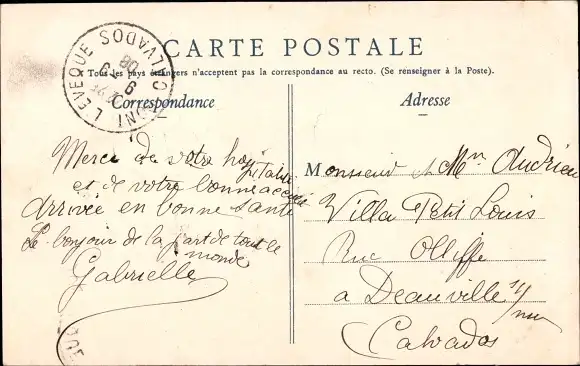 CARTE POSTALE
Tous les pays étrangers n'acceptent pas la correspondance au recto. (Se renseigner à la Poste).
Correspondance
Adresse
PONT L'EVEQUE CALVADOS
9 08
Merci de votre hospitalité
et de votre bonne accueil
arrivée en bonne santé
Le bonjour de la part de tout le
monde
Gabrielle
Monsieur et Mm Audrieu
Villa Petit Louis
Rue Olliffe
a Deauville s/
mer
Calvados